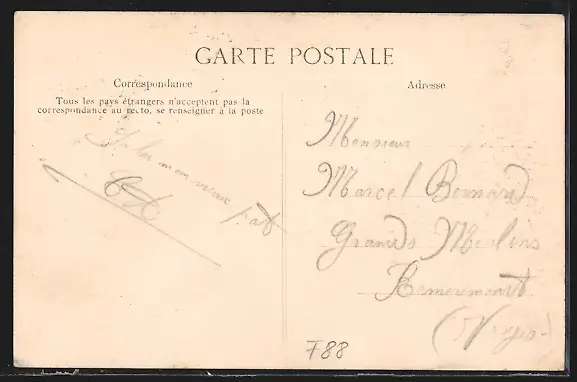 CARTE POSTALE
Correspondance
Tous les pays étrangers n'acceptent pas la
correspondance au recto, se renseigner à la poste
mon vieux
Adresse
Monsieur
Marcel Bernard
Grands Moulins
Remiremont
(Vosges)
788